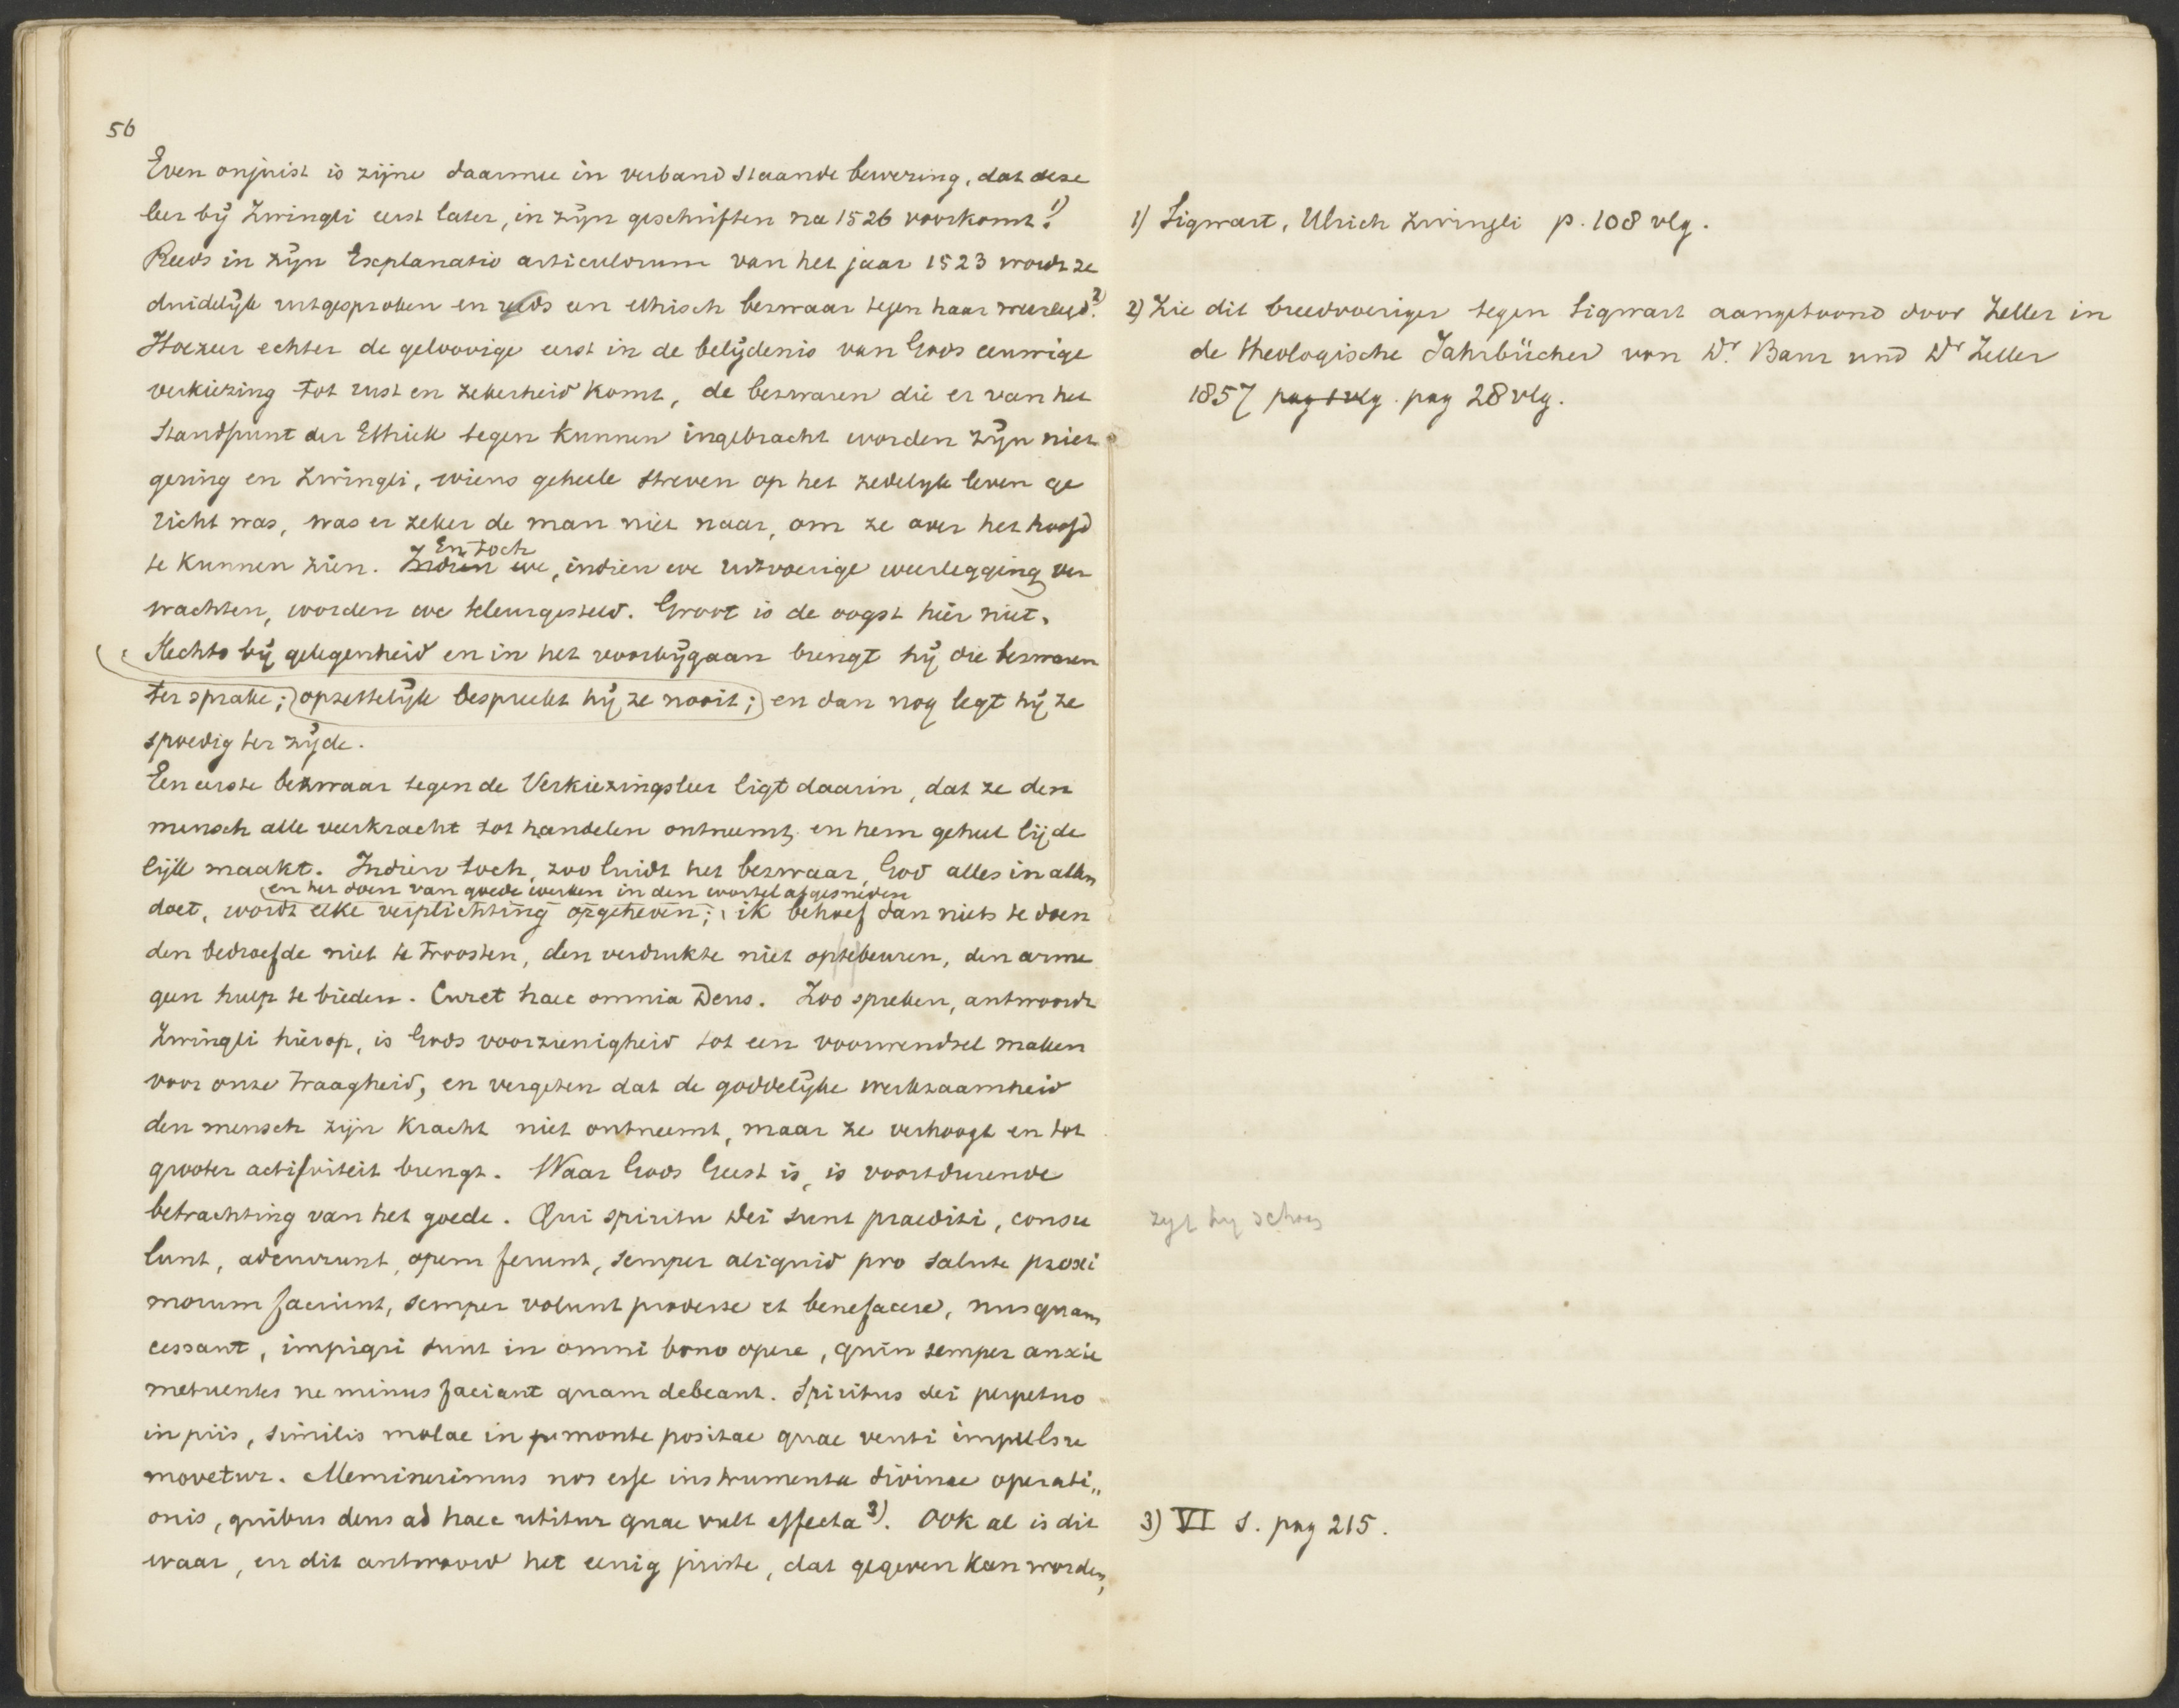 56
Even onjuist is zijne daarmee in verband staande bewering, dat deze
leer bij Zwingli eerst later, in zijn geschriften na 1526 voorkomt. 1)
Reeds in zijn Explanatio articulorum van het jaar 1523 wordt ze
duidelijk uitgesproken en reeds een ethisch bezwaar tegen haar weerlegd. 2)
Hoezeer echter de geloovige eerst in de belijdenis van Gods eeuwige
verkiezing tot rust en zekerheid komt, de bezwaren die er van het
standpunt der Ethiek tegen kunnen ingebracht worden zijn niet
gering en Zwingli, wiens geheele streven op het zedelijk leven ge
richt was, was er zeker de man niet naar, om ze over het hoofd
te kunnen zien. Indien we En toch, indien we uitvoerige weerlegging ver
wachten, worden we teleurgesteld. Groot is de oogst hier niet.
Slechts bij gelegenheid en in het voorbijgaan brengt hij die bezwaren
ter sprake; (opzettelijk bespreekt hij ze nooit;) en dan nog legt hij ze
spoedig ter zijde.
Een eerste bezwaar tegen de Verkiezingsleer ligt daarin, dat ze den
mensch alle veerkracht tot handelen ontneemt, en hem geheel lijde
lijk maakt. Indien toch, zoo luidt het bezwaar, God alles in allen
en het doen van goede werken in den wortel afgesneden
doet, wordt elke verplichting opgeheven; ik behoef dan niets te doen
den bedroefde niet te troosten, den verdrukte niet optebeuren, den arme
geen hulp te bieden. Curet haec omnia Deus. Zoo spreken, antwoordt
Zwingli hierop, is Gods voorzienigheid tot een voorwendsel maken
voor onze traagheid, en vergeten dat de goddelijke werkzaamheid
den mensch zijn kracht niet ontneemt, maar ze verhoogt en tot
grooter activiteit brengt. Waar Gods Geest is, is voortdurende
betrachting van het goede. Qui spiritu Dei sunt praediti, consu
lunt, adcurrunt, opem ferunt, semper aliquid pro salute proxi
morum faciunt, semper volunt prodesse et benefacere, nusquam
cessant, impigri sunt in omni bono opere, quin semper anxie
metuentes ne minus faciant quam debeant. Spiritus dei perpetuo
in piis, similis molae in monte positae quae venti impulsu
movetur. Meminerimus nos esse instrumenta divinae operati„
onis, quibus deus ad haec utitur quae vult effecta 3). Ook al is dit
waar, en dit antwoord het eenig juiste, dat gegeven kan worden,
1) Sigwart, Ulrich Zwingli p. 108 vlg.
2) Zie dit breedvoeriger tegen Sigwart aangetoond door Zeller in
de theologische Jahrbücher von Dr. Baur und Dr Zeller
1857 pag 1 vlg. pag 28 vlg.
3) VI S. pag 215.